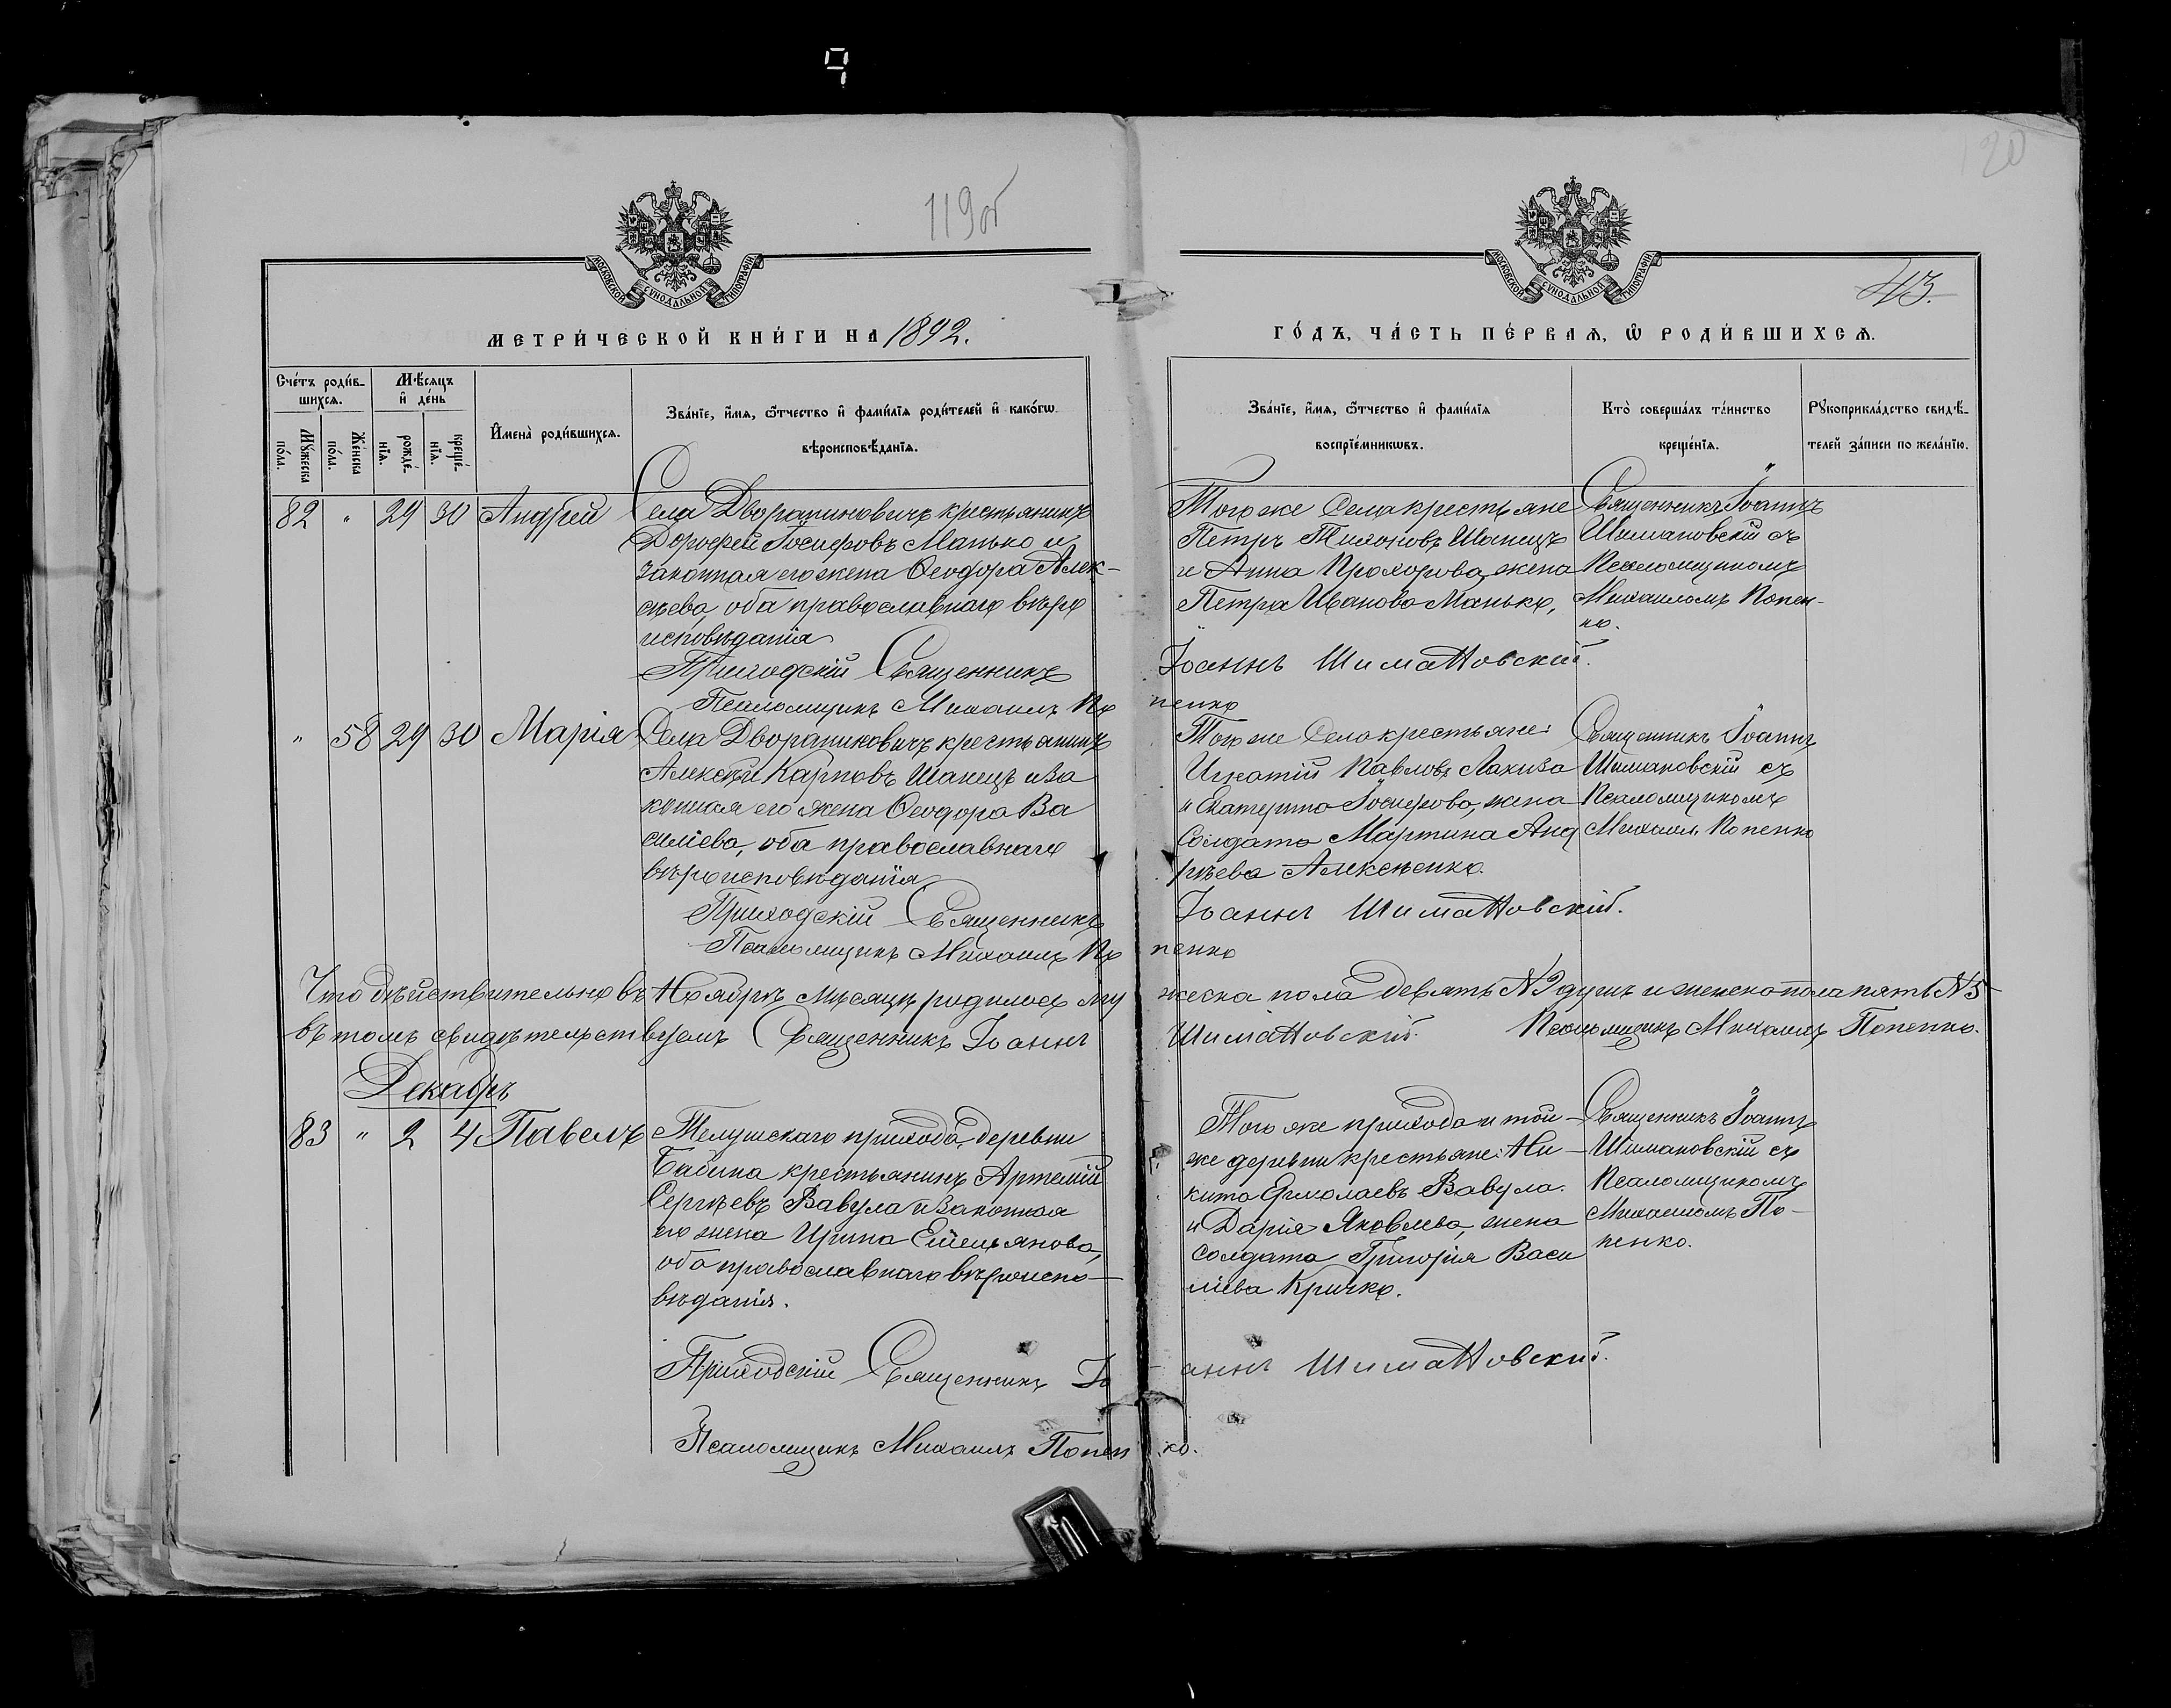 119об
120
43.
МОСКОВСКОЙ СѴНОДАЛЬНОЙ ТИПОГРАФІИ
МОСКОВСКОЙ СѴНОДАЛЬНОЙ ТИПОГРАФІИ
МЕТРИ́ЧЕСКОЙ КНИ́ГИ НА 1892.
ГО́ДЪ, ЧА́СТЬ ПЕ́РВАѦ, Ѿ РОДИ́ВШИХСѦ.
Сче́тъ роди́в-
шихсѧ.
Мꙋ́жеска по́ла.
Же́нска по́ла.
Мѣ́сѧцъ
и҆ де́нь
рожде́-
нїѧ.
креще́-
нїѧ.
И҆мена̀ роди́вшихсѧ.
Зва́нїе, и҆́мѧ, ѻ҆́тчество и҆ фами́лїѧ роди́телей и҆ како́гѡ
вѣроисповѣ́данїѧ.
Зва́нїе, и҆́мѧ, ѻ҆́тчество и҆ фами́лїѧ
воспрїе́мникѡвъ.
Кто̀ соверша́лъ та́инство
креще́нїѧ.
Рꙋкоприкла́дство свидѣ́-
телей за́писи по жела́нїю.
82 " 29 30 Андрей
Села Дворапиновичъ крестьянинъ
Дорофей Іосифовъ Манько и
законная его жена Ѳеодора Алек-
сѣева, оба православнаго вѣро
исповѣданія
Тогоже Села крестьяне
Петръ Тихоновъ Шапецъ
и Анна Прохорова, жена
Петра Иванова Манько,
Священникъ Іоаннъ
Шимановскій съ
Псаломщикомъ
Михаиломъ Попен-
ко.
Приходскій Священникъ Іоаннъ Шимановскій.
Псаломщикъ Михаилъ Попенко
" 58 29 30 Марія
Села Дворапиновичъ крестьянинъ
Алексѣй Карповъ Шапецъ и за
конная его жена Ѳеодора Ва
силіева, оба православнаго
вѣроисповѣданія
Тогоже Села крестьяне:
Игнатій Павловъ Лакиза
и Екатерина Іосифова, жена
Солдата Мартина Анд
рѣева Алексѣенко.
Священникъ Іоаннъ
Шимановскій съ
Псаломщикомъ
Михаил. Попенко
Приходскій Священникъ Іоаннъ Шимановскій.
Псаломщикъ Михаилъ Попенко
Что дѣйствительно въ Ноябрѣ мѣсяцѣ родилось мужеска пола девять №9 душъ и женска пола пять №5
въ томъ свидѣтельствуемъ Священникъ Іоаннъ Шимановскій. Псаломщикъ Михаилъ Попенко.
Декабрь
83 " 2 4 Павелъ
Телушскаго прихода, деревни
Бабина крестьянинъ Артемій
Сергѣевъ Вавула и законная
его жена Ирина Емельянова,
оба православнаго вѣроиспо-
вѣданія.
Того же прихода и той-
же деревни крестьяне: Ни-
кита Ермолаевъ Вавула
и Дарія Яковлева, жена
Солдата Григорія Васи
ліева Кричко.
Священникъ Іоаннъ
Шимановскій съ
Псаломщикомъ
Михаиломъ По-
пенко.
Приходскій Священникъ Іоаннъ Шимановскій.
Псаломщикъ Михаилъ Попенко.